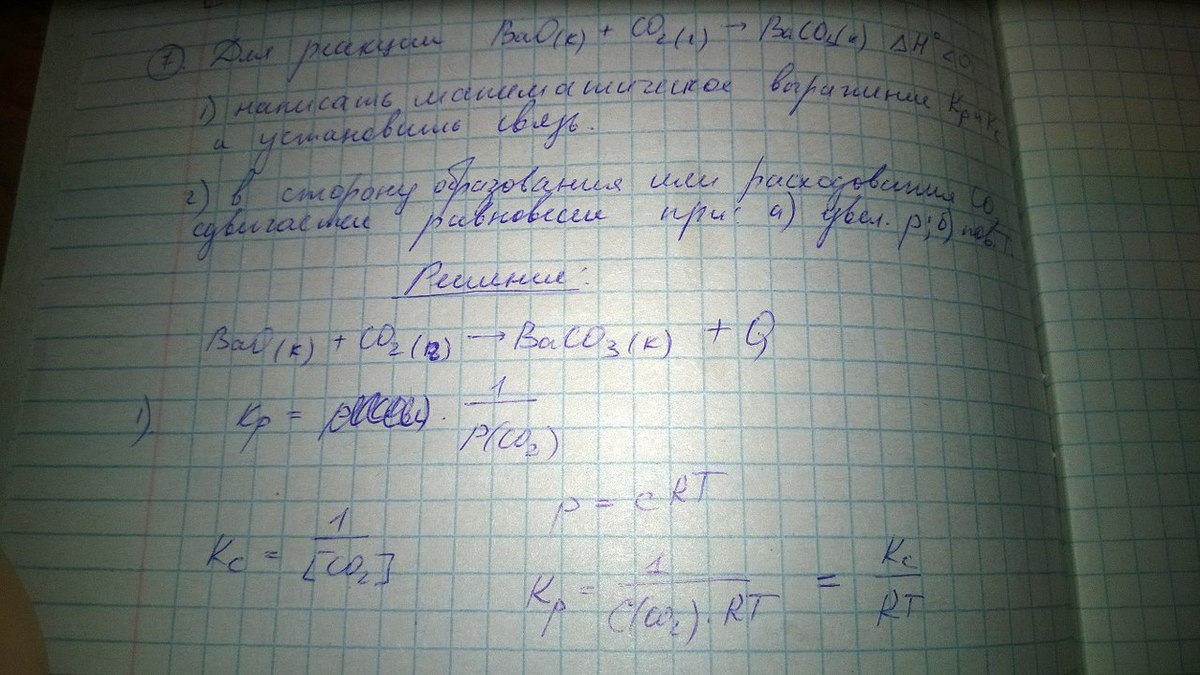 7 Для реакции BaO(к) + CO2(г) → BaCO3(к) ΔH°<0
1) написать математическое выражение Kp и Kc
и установить связь.
2) в сторону образования или расходования CO2
сдвигается равновесие при: а) увел. p; б) пов. T.
Решение:
BaO(к) + CO2(г) → BaCO3(к) + Q
1) Kp = 1/P(CO2)
p = cRT
Kc = 1/[CO2]
Kp = 1/(C(CO2)·RT) = Kc/RT